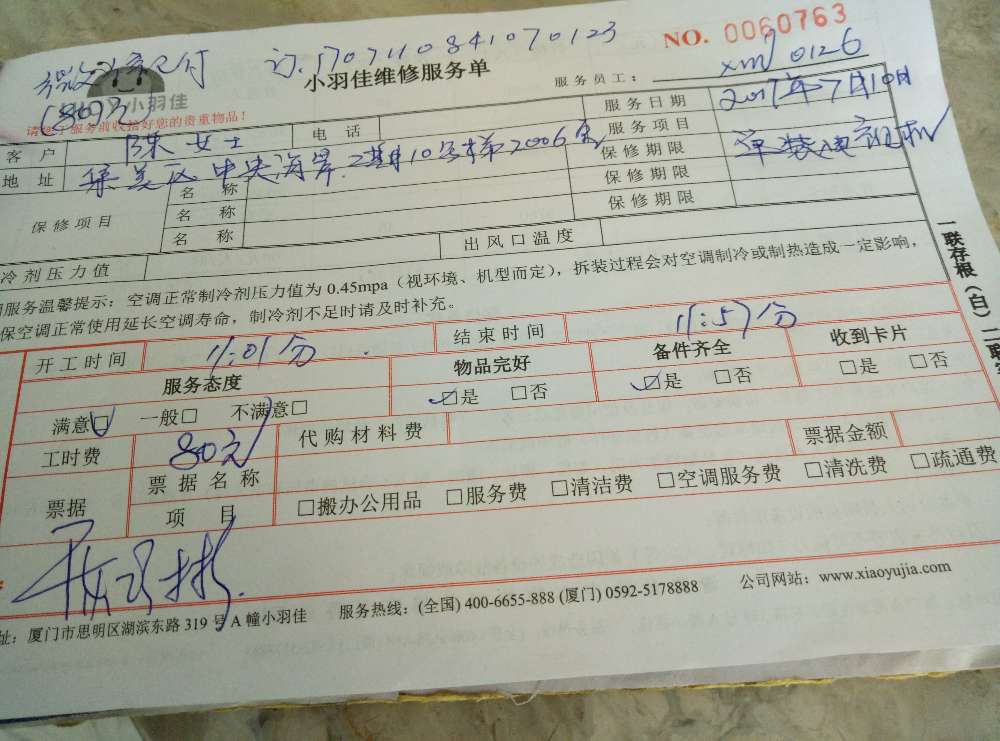 订.170711084107 0123
NO. 0060763
(80)元
小羽佳
小羽佳维修服务单
服务员工: xm 0126
服务前收拾好您的贵重物品!
客户 陈女士 电话 服务日期 2017年7月10日
地址 集美区中央海岸二期10号楼2006室 服务项目
保修项目 名称 保修期限
名称 保修期限
名称 保修期限
冷剂压力值 出风口温度
服务温馨提示: 空调正常制冷剂压力值为 0.45mpa(视环境、机型而定),拆装过程会对空调制冷或制热造成一定影响,
保空调正常使用延长空调寿命,制冷剂不足时请及时补充。
开工时间 11:01分 结束时间 11:57分
服务态度 物品完好 备件齐全 收到卡片
满意☑ 一般□ 不满意□ ☑是 □否 ☑是 □否 □是 □否
工时费 80元 代购材料费 票据金额
票据 票据名称
项目 □搬办公用品 □服务费 □清洁费 □空调服务费 □清洗费 □疏通费
址: 厦门市思明区湖滨东路 319 号 A 幢小羽佳 服务热线: (全国) 400-6655-888 (厦门) 0592-5178888 公司网站: www.xiaoyujia.com
一联存根(白)二联